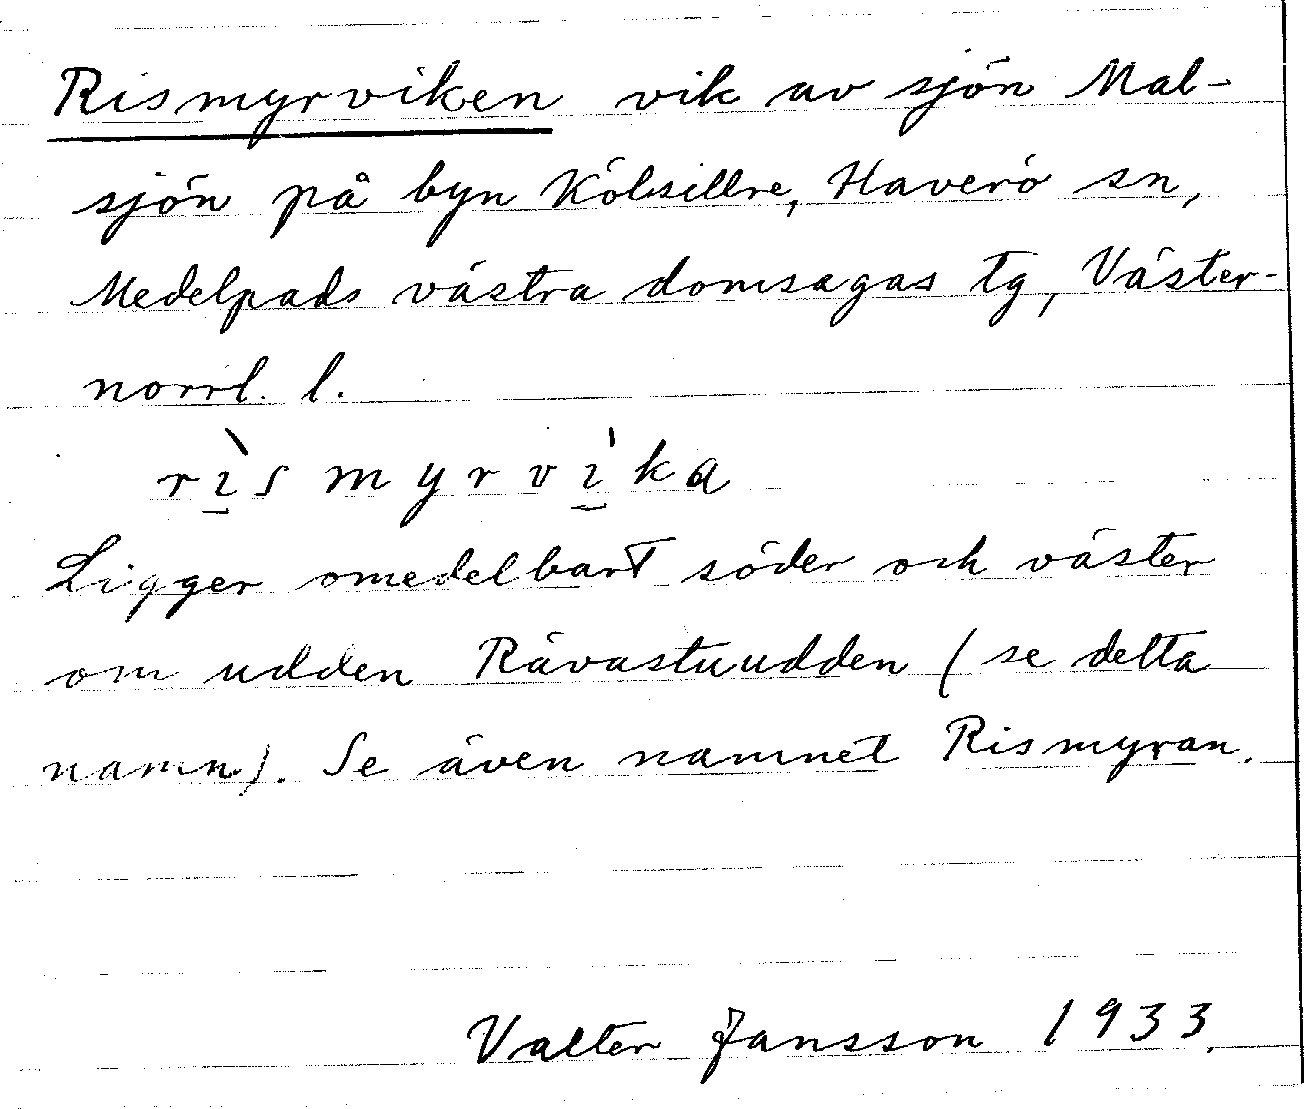 Rismyrviken vik av sjön Mal-
sjön på byn Kölsillre, Haverö sn,
Medelpads västra domsagas tg, Väster-
norrl. l.
rı̠̀smyrvı̠̍ka
Ligger omedelbart söder och väster
om udden Rävastuudden (se detta
namn). Se även namnet Rismyran.
Valter Jansson 1933.